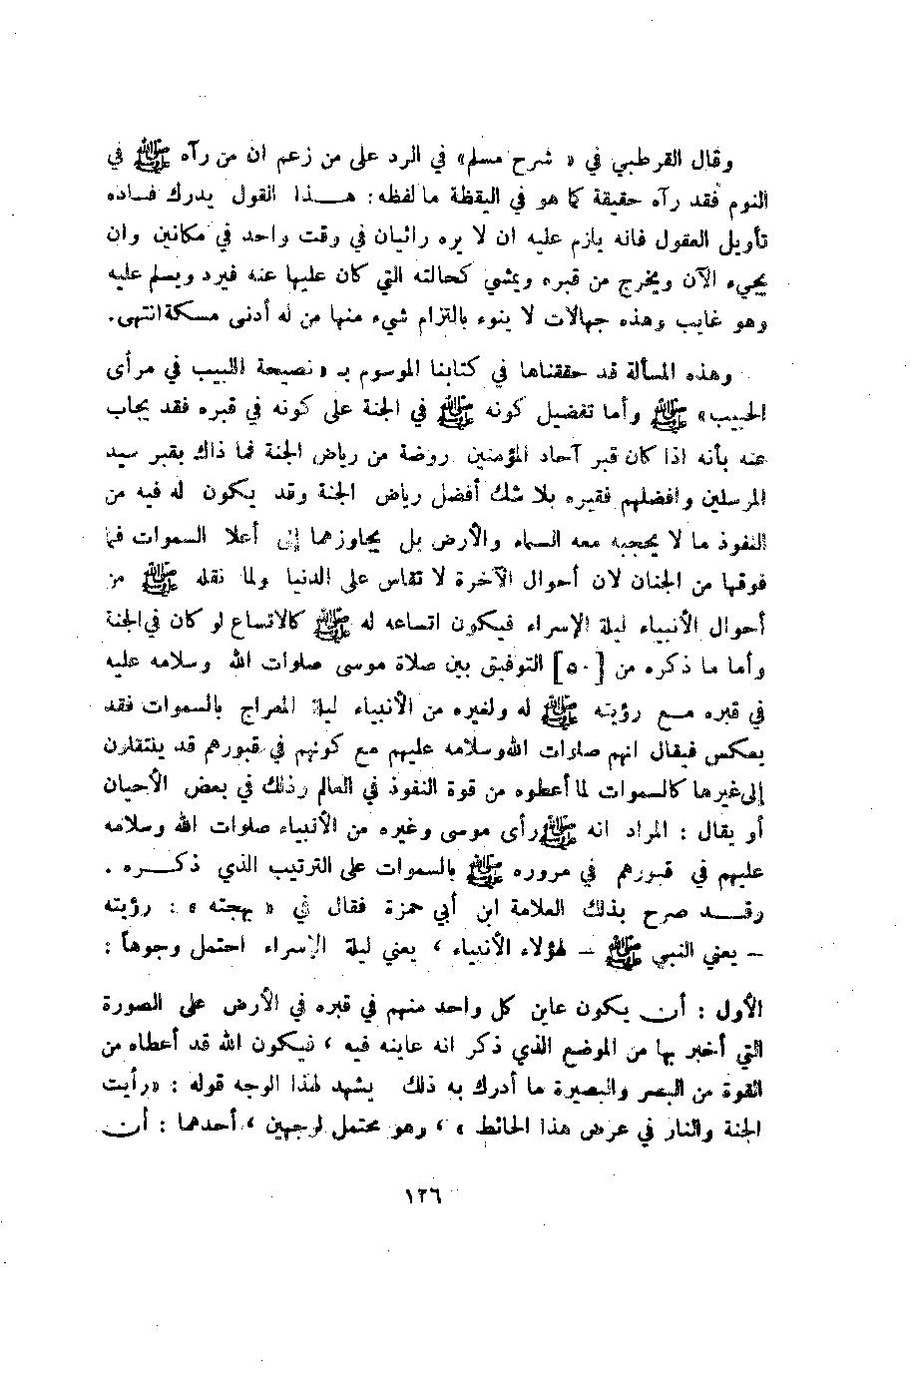 وقال القرطبي في « شرح مسلم» في الرد على من زعم ان من رآه ﷺ في
النوم فقد رآه حقيقة كما هو في اليقظة ما لفظه : هـــذا القول يدرك فساده
تأويل العقول فانه يلزم عليه ان لا يره رائيان في وقت واحد في مكانين وان
يجيء الآن ويخرج من قبره ويمشي كحالته التي كان عليها عنه فيرد ويسلم عليه
وهو غايب وهذه جهالات لا ينوء بالتزام شيء منها من له أدنى مسكة انتهى.
وهذه المسألة قد حققناها في كتابنا الموسوم بـ «نصيحة اللبيب في مرأى
الحبيب» ﷺ وأما تفضيل كونه ﷺ في الجنة على كونه في قبره فقد يجاب
عنه بأنه اذا كان قبر آحاد المؤمنين روضة من رياض الجنة فما ذاك بقبر سيد
المرسلين وافضلهم فقبره بلا شك أفضل رياض الجنة وقد يكون له فيه من
النفوذ ما لا يحجبه معه السماء والأرض بل يجاوزهما إلى أعلا السموات فما
فوقها من الجنان لان أحوال الآخرة لا تقاس على الدنيا ولما نقله ﷺ من
أحوال الأنبياء ليلة الإسراء فيكون اتساعه له ﷺ كالاتساع لو كان في الجنة
وأما ما ذكره من [٥٠] التوفيق بين صلاة موسى صلوات الله وسلامه عليه
في قبره مـــع رؤيته ﷺ له ولغيره من الأنبياء ليلة المعراج بالسموات فقد
يعكس فيقال انهم صلوات الله وسلامه عليهم مع كونهم في قبورهم قد ينتقلون
إلى غيرها كالسموات لما أعطوه من قوة النفوذ في العالم وذلك في بعض الأحيان
أو يقال : المراد انه ﷺ رأى موسى وغيره من الأنبياء صلوات الله وسلامه
عليهم في قبورهم في مروره ﷺ بالسموات على الترتيب الذي ذكـــره .
وقـــد صرح بذلك العلامة ابن أبي حمزة فقال في « بهجته » : رؤيته
– يعني النبي ﷺ – لهؤلاء الأنبياء ، يعني ليلة الإسراء احتمل وجوهاً :
الأول : أن يكون عاين كل واحد منهم في قبره في الأرض على الصورة
التي أخبر بها من الموضع الذي ذكر انه عاينه فيه ، فيكون الله قد أعطاه من
القوة من البصر والبصيرة ما أدرك به ذلك يشهد لهذا الوجه قوله : «رأيت
الجنة والنار في عرض هذا الحائط » ، وهو محتمل لوجهين ، أحدهما : أن
١٢٦